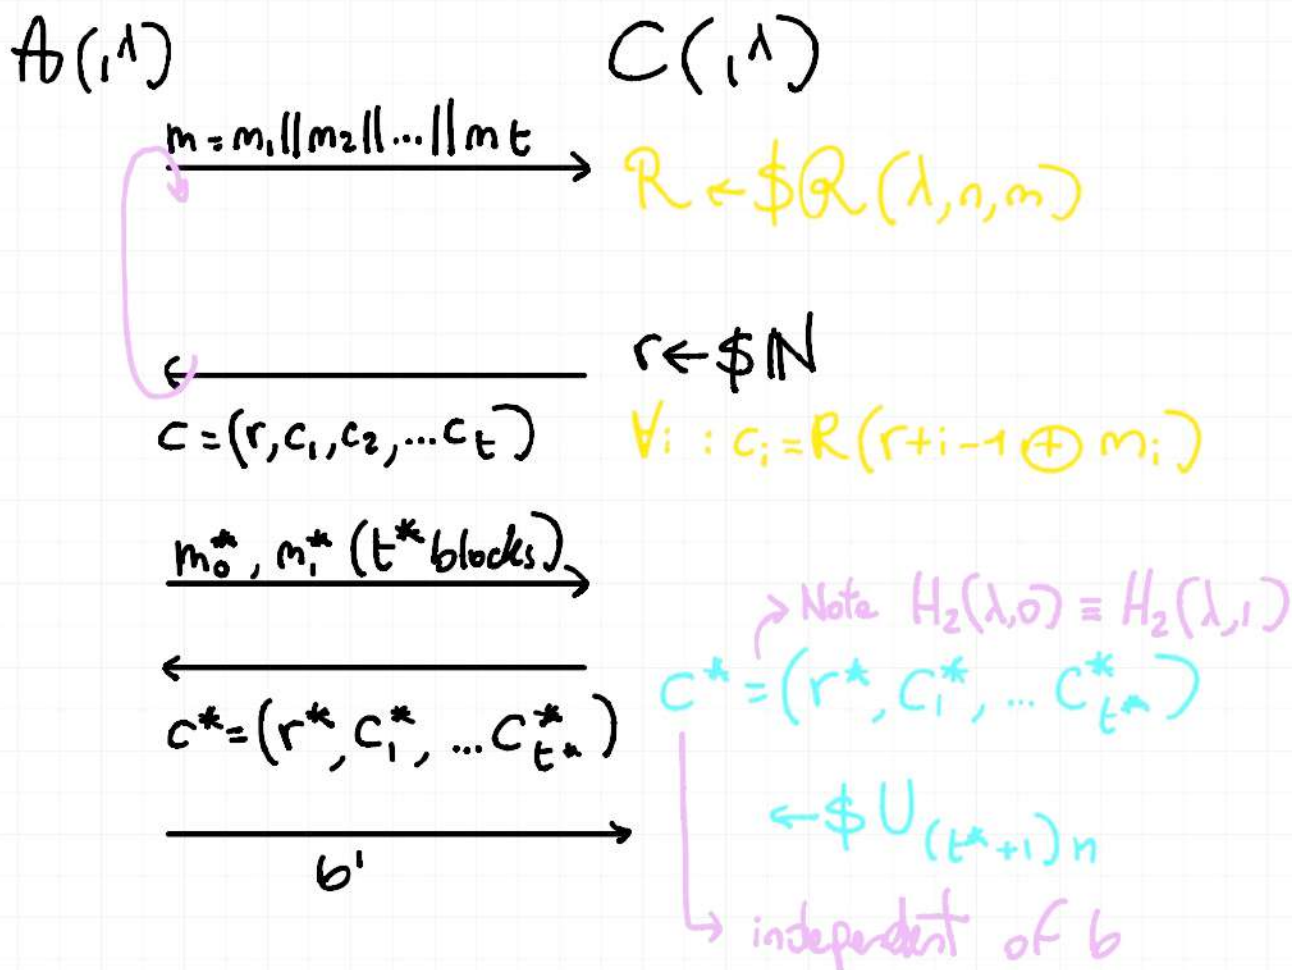 A(1^λ)
C(1^λ)
m = m₁||m₂||...||mt
R ←$ R(λ,n,m)
r ←$ ℕ
C = (r, c₁, c₂, ... c_t)
∀i : c_i = R(r+i-1 ⊕ m_i)
m₀*, m₁* (t* blocks)
→ Note H₂(λ,0) ≡ H₂(λ,1)
C* = (r*, C₁*, ... C*_t*)
c* = (r*, C₁*, ... C*_t*)
←$ U_(t*+1)n
b'
→ independent of b